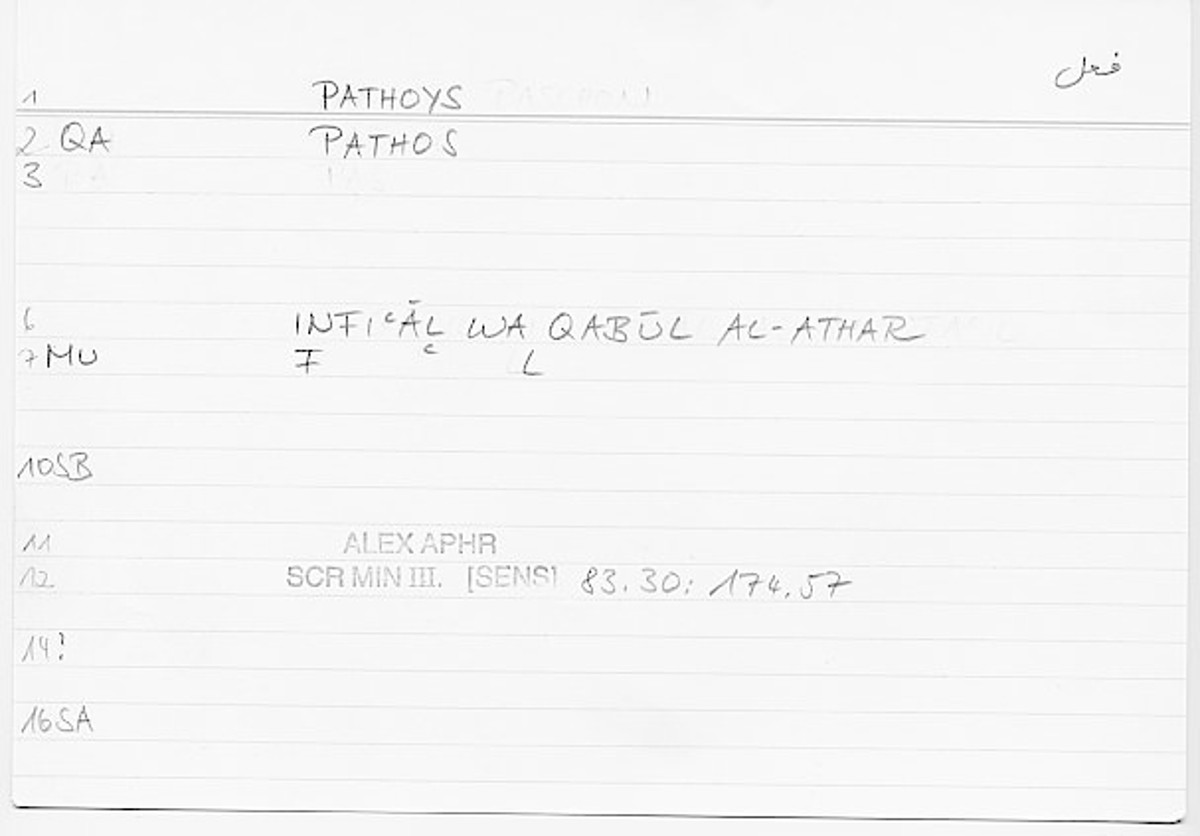 فعل
1 PATHOYS
2 QA PATHOS
3
6 INFIʿĀL WA QABŪL AL-ATHAR
7 MU F ʿ L
10 SB
11 ALEX APHR
12 SCR MIN III. [SENS] 83.30: 174.57
14 ?
16 SA